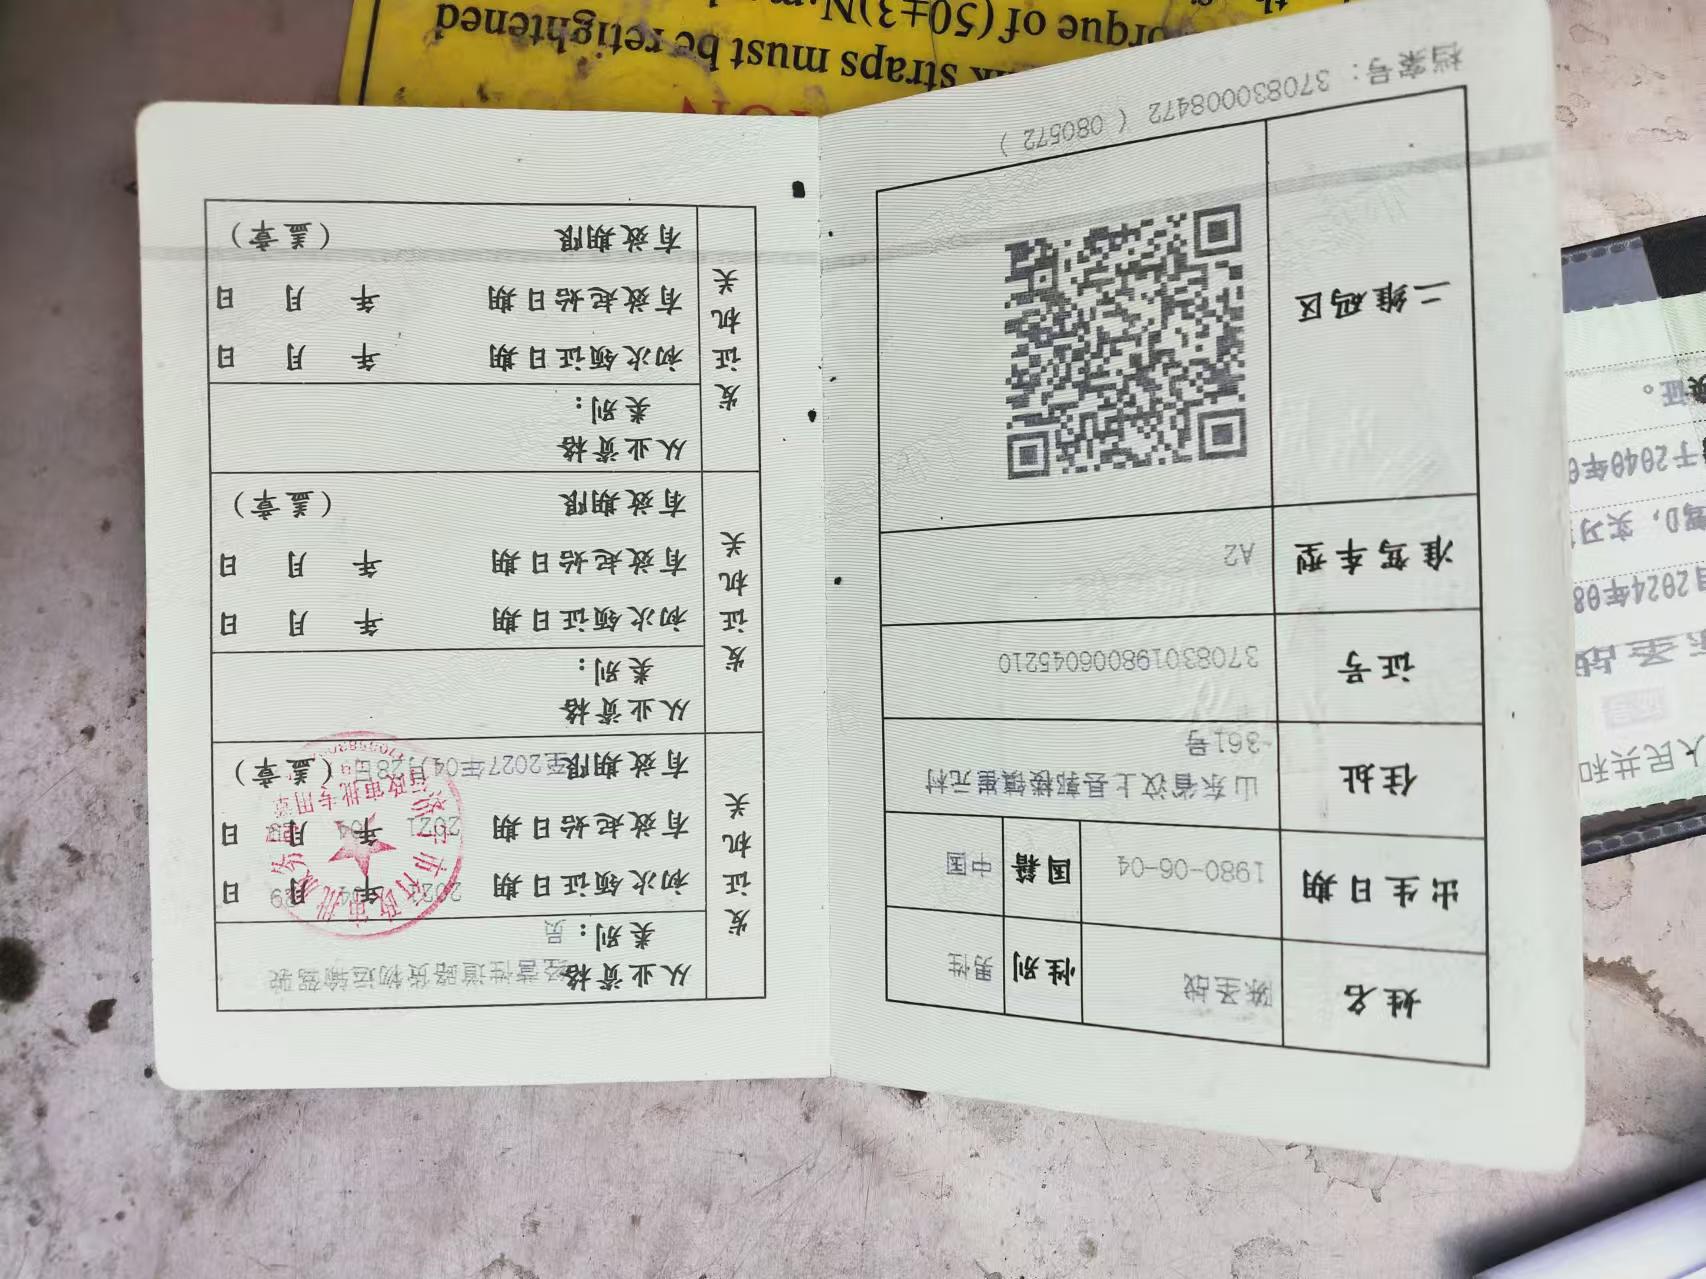 姓名 陈圣战 性别 男性
出生日期 1980-06-04 国籍 中国
住址 山东省汶上县郭楼镇崔元村
361号
证号 370830198006045210
准驾车型 A2
二维码区
档案号：370830008472（080572）
从业资格 经营性道路货物运输驾驶
类别： 员
初次领证日期 2021年04月29日
有效起始日期 2021年04月 日
有效期限 至2027年04月28日（盖章）
发证机关
行政审批专用章
从业资格
类别：
初次领证日期 年 月 日
有效起始日期 年 月 日
有效期限 （盖章）
发证机关
从业资格
类别：
初次领证日期 年 月 日
有效起始日期 年 月 日
有效期限 （盖章）
发证机关
straps must be retightened
orque of (50±3)N·m
人民共和
圣战
2024年08
实习
于2040年0
证。